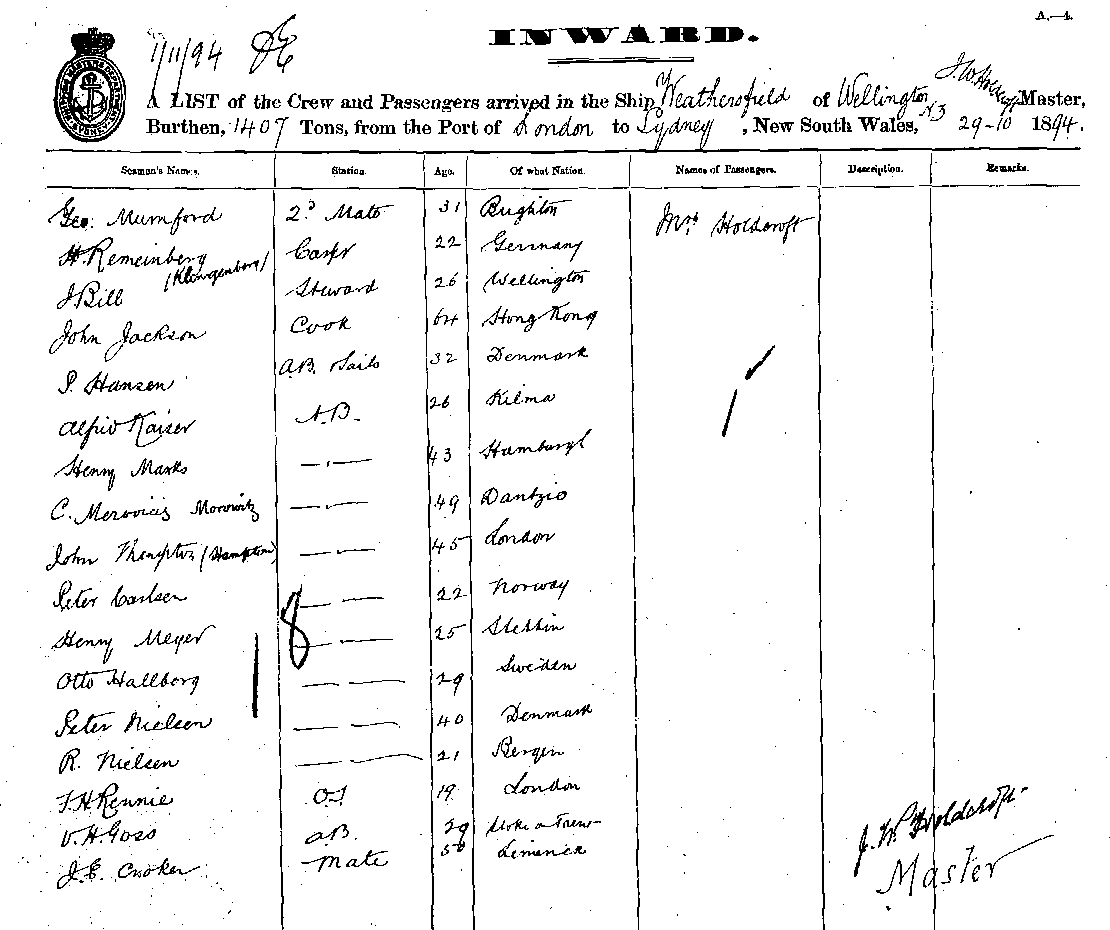 A.—4.
1/11/94
INWARD.
A LIST of the Crew and Passengers arrived in the Ship Weathersfield of Wellington NZ J. W. Holdcroft Master,
Burthen, 1407 Tons, from the Port of London to Sydney, New South Wales, 29-10 1894.
Seaman's Names. Station. Age. Of what Nation. Names of Passengers. Description. Remarks.
Geo. Mumford 2d Mate 31 Brighton Mrs Holdcroft
H. Remeinberg (Klingenberg) Carpr 22 Germany
J Bill Steward 26 Wellington
John Jackson Cook 64 Hong Kong
P. Hansen A.B. Sails 32 Denmark
Alfrid Kaiser A.B. 26 Kilma
Henry Marks —"— 43 Hamburgh
C. Merovicz Morowitz —"— 49 Dantzic
John Thompton (Hampton) —"— 45 London
Peter Carlsen — — 22 Norway
Henry Meyer —"— 25 Stettin
Otto Hallborg — — 29 Sweden
Peter Nielsen — — 40 Denmark
R. Nielsen — — 21 Bergen
F. H Rennie OS 19 London
V. H Goss A.B. 29 Stoke on Trent
J. E. Crocker Mate 50 Limerick
1
18
J. W. Holdcroft
Master